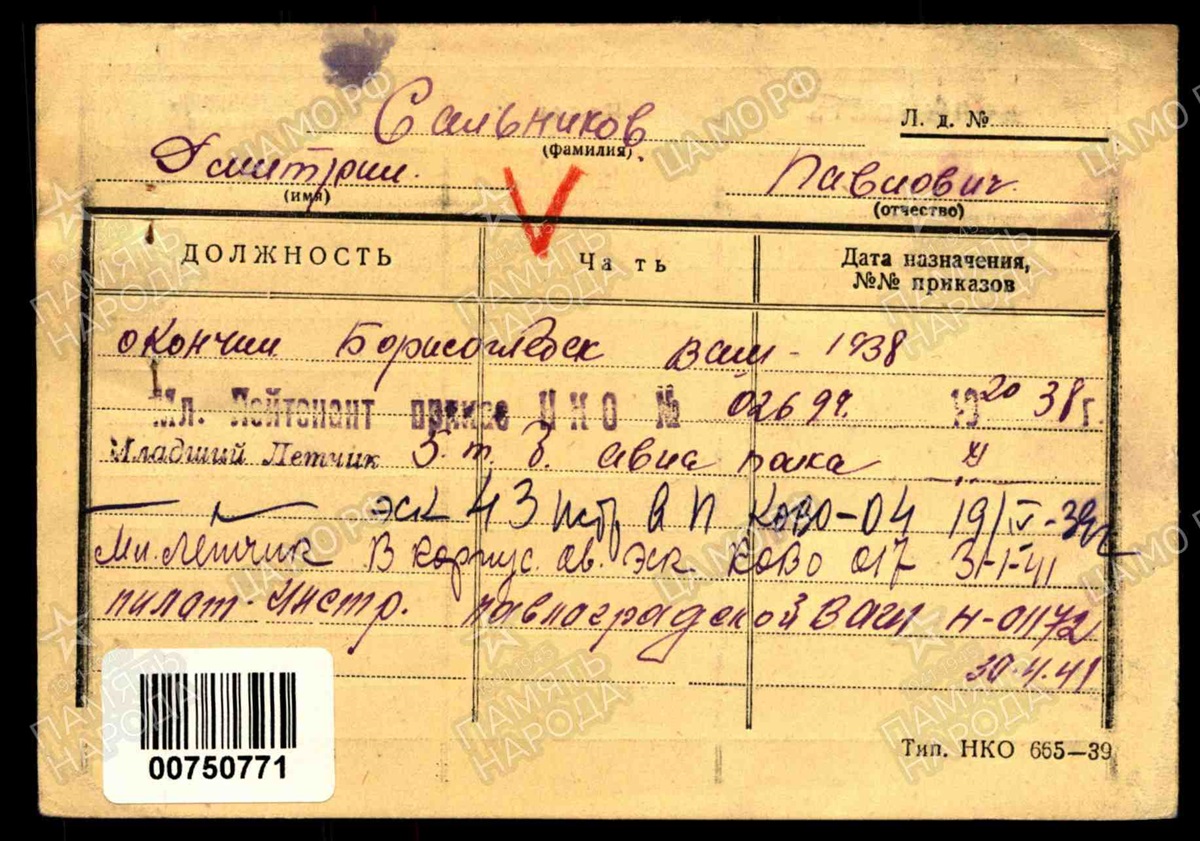 Сальников
Л. д. №
(фамилия)
Дмитрий
Павлович
(имя)
(отчество)
ДОЛЖНОСТЬ
Часть
Дата назначения,
№№ приказов
окончил Борисоглебск ваш - 1938
Мл. Лейтенант приказ НКО № 02697. 1938 г.
Младший Летчик 5. т. б. авиа полка
— " — эск 43 истр ап КОВО-04 19/IV-39г
Мл. Летчик в корпус. ав. эск. КОВО 017 31-I-41
пилот-инстр. павлоградской ВАШ Н-01172
30.4.41
Тип. НКО 665—39
00750771
ПАМЯТЬ НАРОДА
ЦАМО.РФ